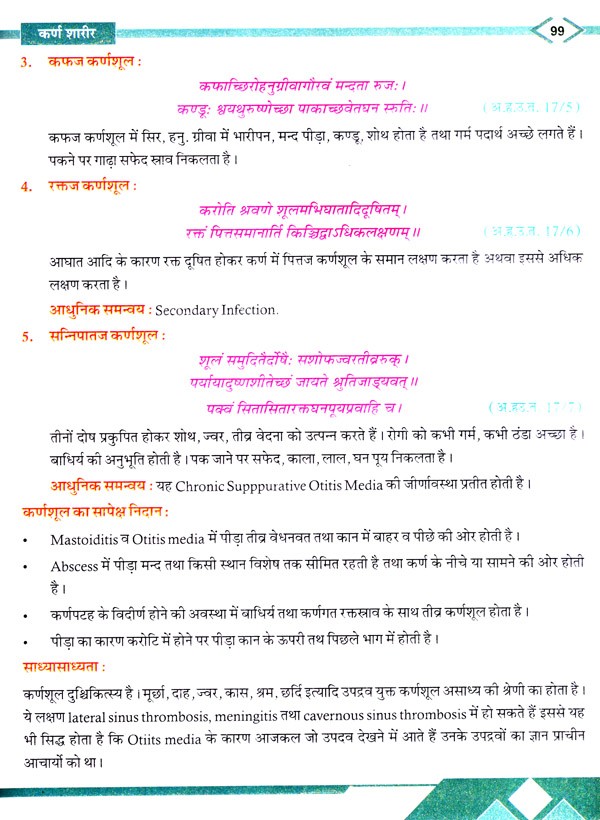 कर्ण शारीर
99
3. कफज कर्णशूल :
कफाच्छिरोहनुग्रीवागौरवं मन्दता रुजः।
कण्डूः श्वयथुरुष्णेच्छा पाकाच्छवेतघन स्रुतिः॥ (अ.ह.उ.त. 17/5)
कफज कर्णशूल में सिर, हनु. ग्रीवा में भारीपन, मन्द पीड़ा, कण्डू, शोथ होता है तथा गर्म पदार्थ अच्छे लगते हैं।
पकने पर गाढ़ा सफेद स्राव निकलता है।
4. रक्तज कर्णशूल :
करोति श्रवणे शूलमभिघातादिदूषितम्।
रक्तं पित्तसमानार्ति किञ्चिद्वाऽधिकलक्षणम्॥ (अ.ह.उ.त. 17/6)
आघात आदि के कारण रक्त दूषित होकर कर्ण में पित्तज कर्णशूल के समान लक्षण करता है अथवा इससे अधिक
लक्षण करता है।
आधुनिक समन्वय : Secondary Infection.
5. सन्निपातज कर्णशूल :
शूलं समुदितैर्दोषैः सशोफज्वरतीव्ररुक्।
पर्यायादुष्णशीतेच्छं जायते श्रुतिजाड्यवत्॥
पक्वं सितासितारक्तघनपूयप्रवाहि च। (अ.हउ.त. 17/7)
तीनों दोष प्रकुपित होकर शोथ, ज्वर, तीव्र वेदना को उत्पन्न करते हैं। रोगी को कभी गर्म, कभी ठंडा अच्छा है।
बाधिर्य की अनुभूति होती है। पक जाने पर सफेद, काला, लाल, घन पूय निकलता है।
आधुनिक समन्वय : यह Chronic Supppurative Otitis Media की जीर्णावस्था प्रतीत होती है।
कर्णशूल का सापेक्ष निदान :
• Mastoiditis व Otitis media में पीड़ा तीव्र वेधनवत तथा कान में बाहर व पीछे की ओर होती है।
• Abscess में पीड़ा मन्द तथा किसी स्थान विशेष तक सीमित रहती है तथा कर्ण के नीचे या सामने की ओर होती
है।
• कर्णपटह के विदीर्ण होने की अवस्था में बाधिर्य तथा कर्णगत रक्तस्राव के साथ तीव्र कर्णशूल होता है।
• पीड़ा का कारण करोटि में होने पर पीड़ा कान के ऊपरी तथ पिछले भाग में होती है।
साध्यासाध्यता :
कर्णशूल दुश्चिकित्स्य है। मूर्छा, दाह, ज्वर, कास, श्रम, छर्दि इत्यादि उपद्रव युक्त कर्णशूल असाध्य की श्रेणी का होता है।
ये लक्षण lateral sinus thrombosis, meningitis तथा cavernous sinus thrombosis में हो सकते हैं इससे यह
भी सिद्ध होता है कि Otiits media के कारण आजकल जो उपदव देखने में आते हैं उनके उपद्रवों का ज्ञान प्राचीन
आचार्यो को था।